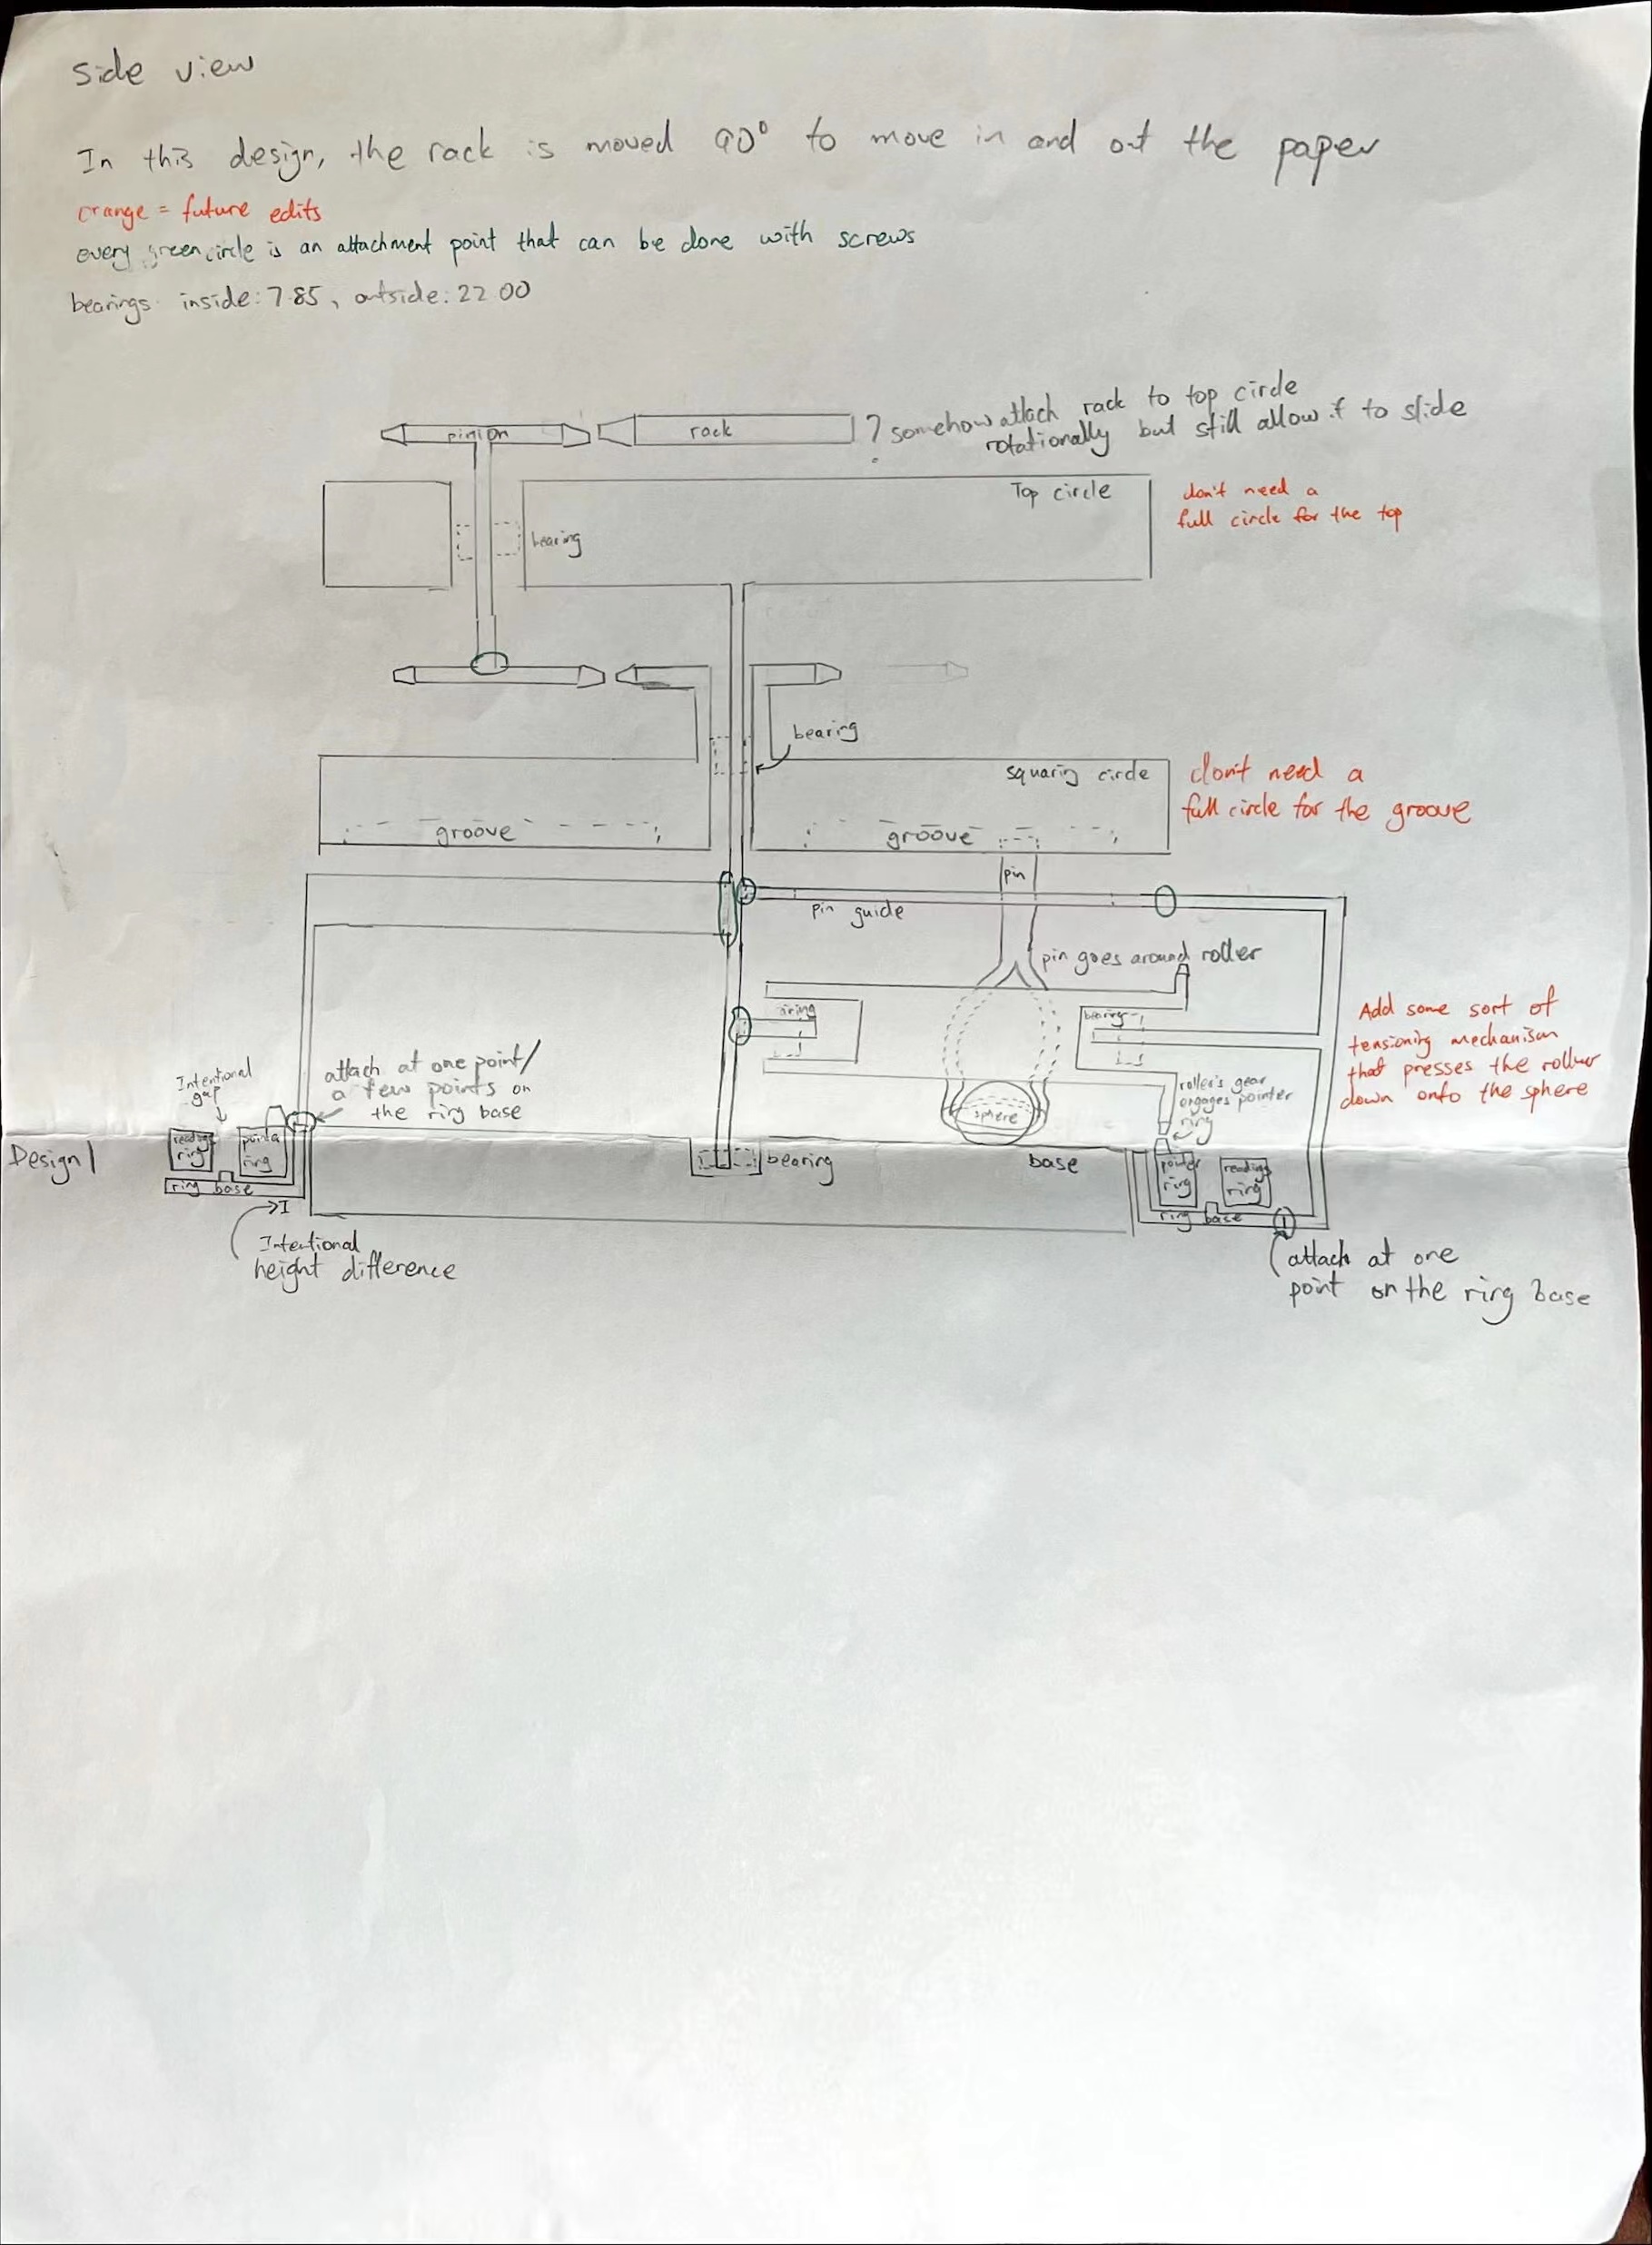 Side view
In this design, the rack is moved 90° to move in and out the paper
orange = future edits
every green circle is an attachment point that can be done with screws
bearings: inside: 7.85, outside: 22.00
pinion
rack
? somehow attach rack to top circle
rotationally but still allow it to slide
Top circle
don't need a
full circle for the top
bearing
bearing
squaring circle
don't need a
full circle for the groove
groove
groove
pin
pin guide
pin goes around roller
bearing
Add some sort of
tensioning mechanism
that presses the roller
down onto the sphere
attach at one point/
a few points on
the ring base
Intentional
gap
roller's gear
engages pointer
ring
sphere
Design 1
reading
ring
ring
bearing
base
pointer
ring
reading
ring
ring base
ring base
I
Intentional
height difference
attach at one
point on the ring base